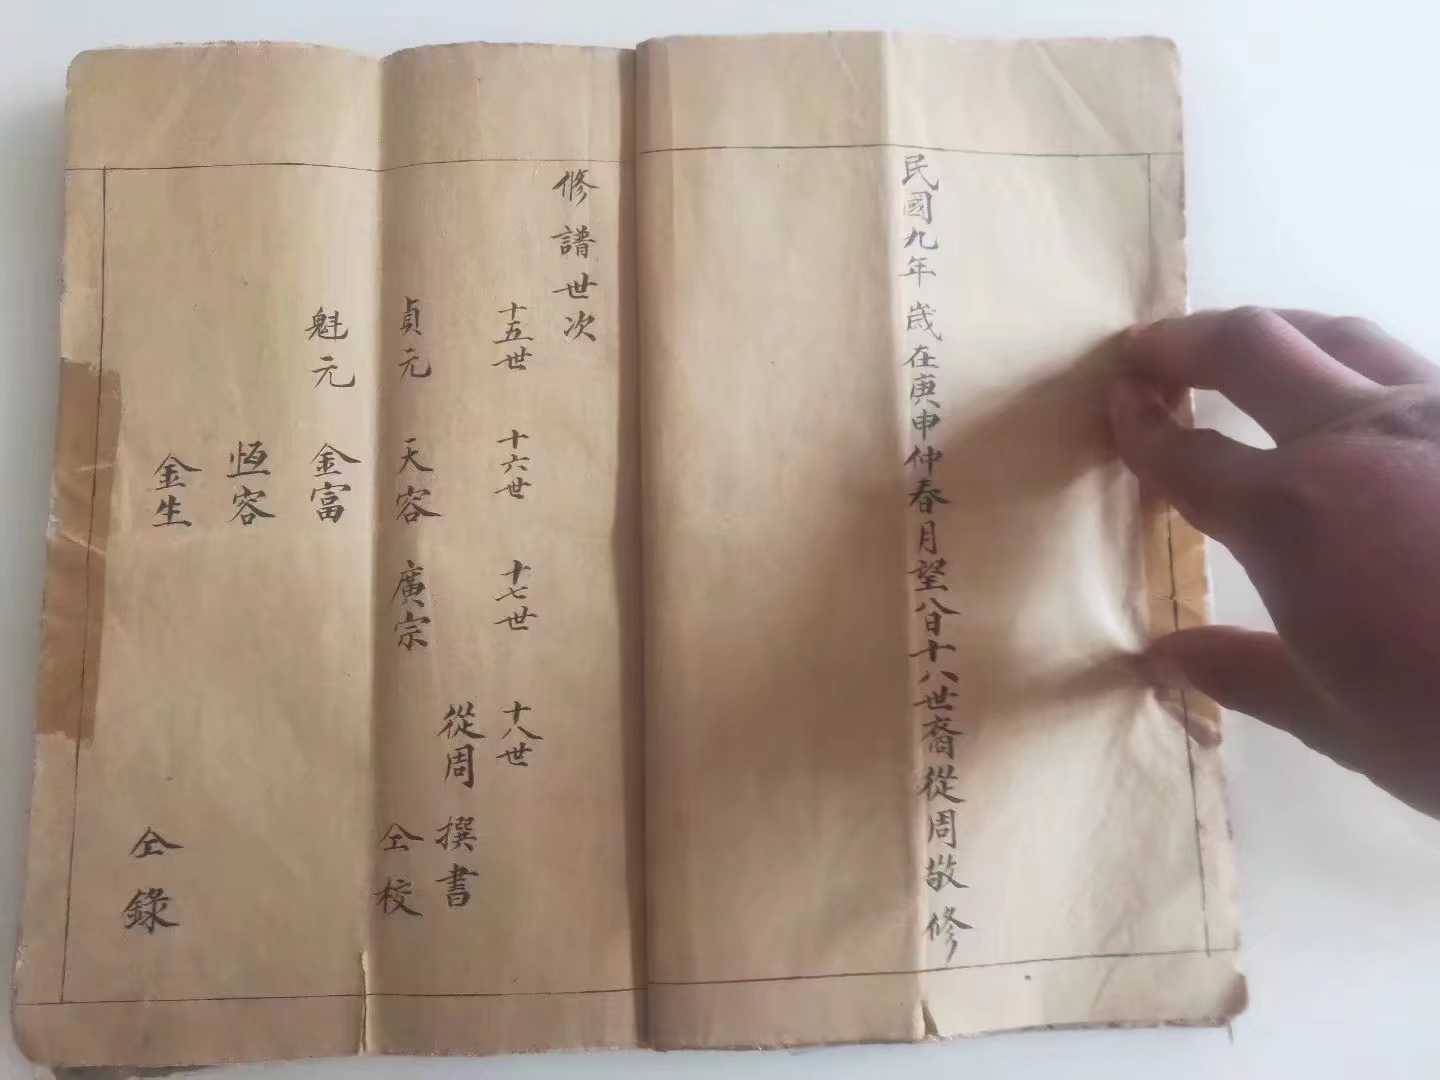 民國九年歲在庚申仲春月望八日十八世裔從周敬修
修譜世次
十五世 十六世 十七世 十八世
從周 撰書
貞元 天容 廣宗 仝校
魁元 金富
恆容
金生 仝錄